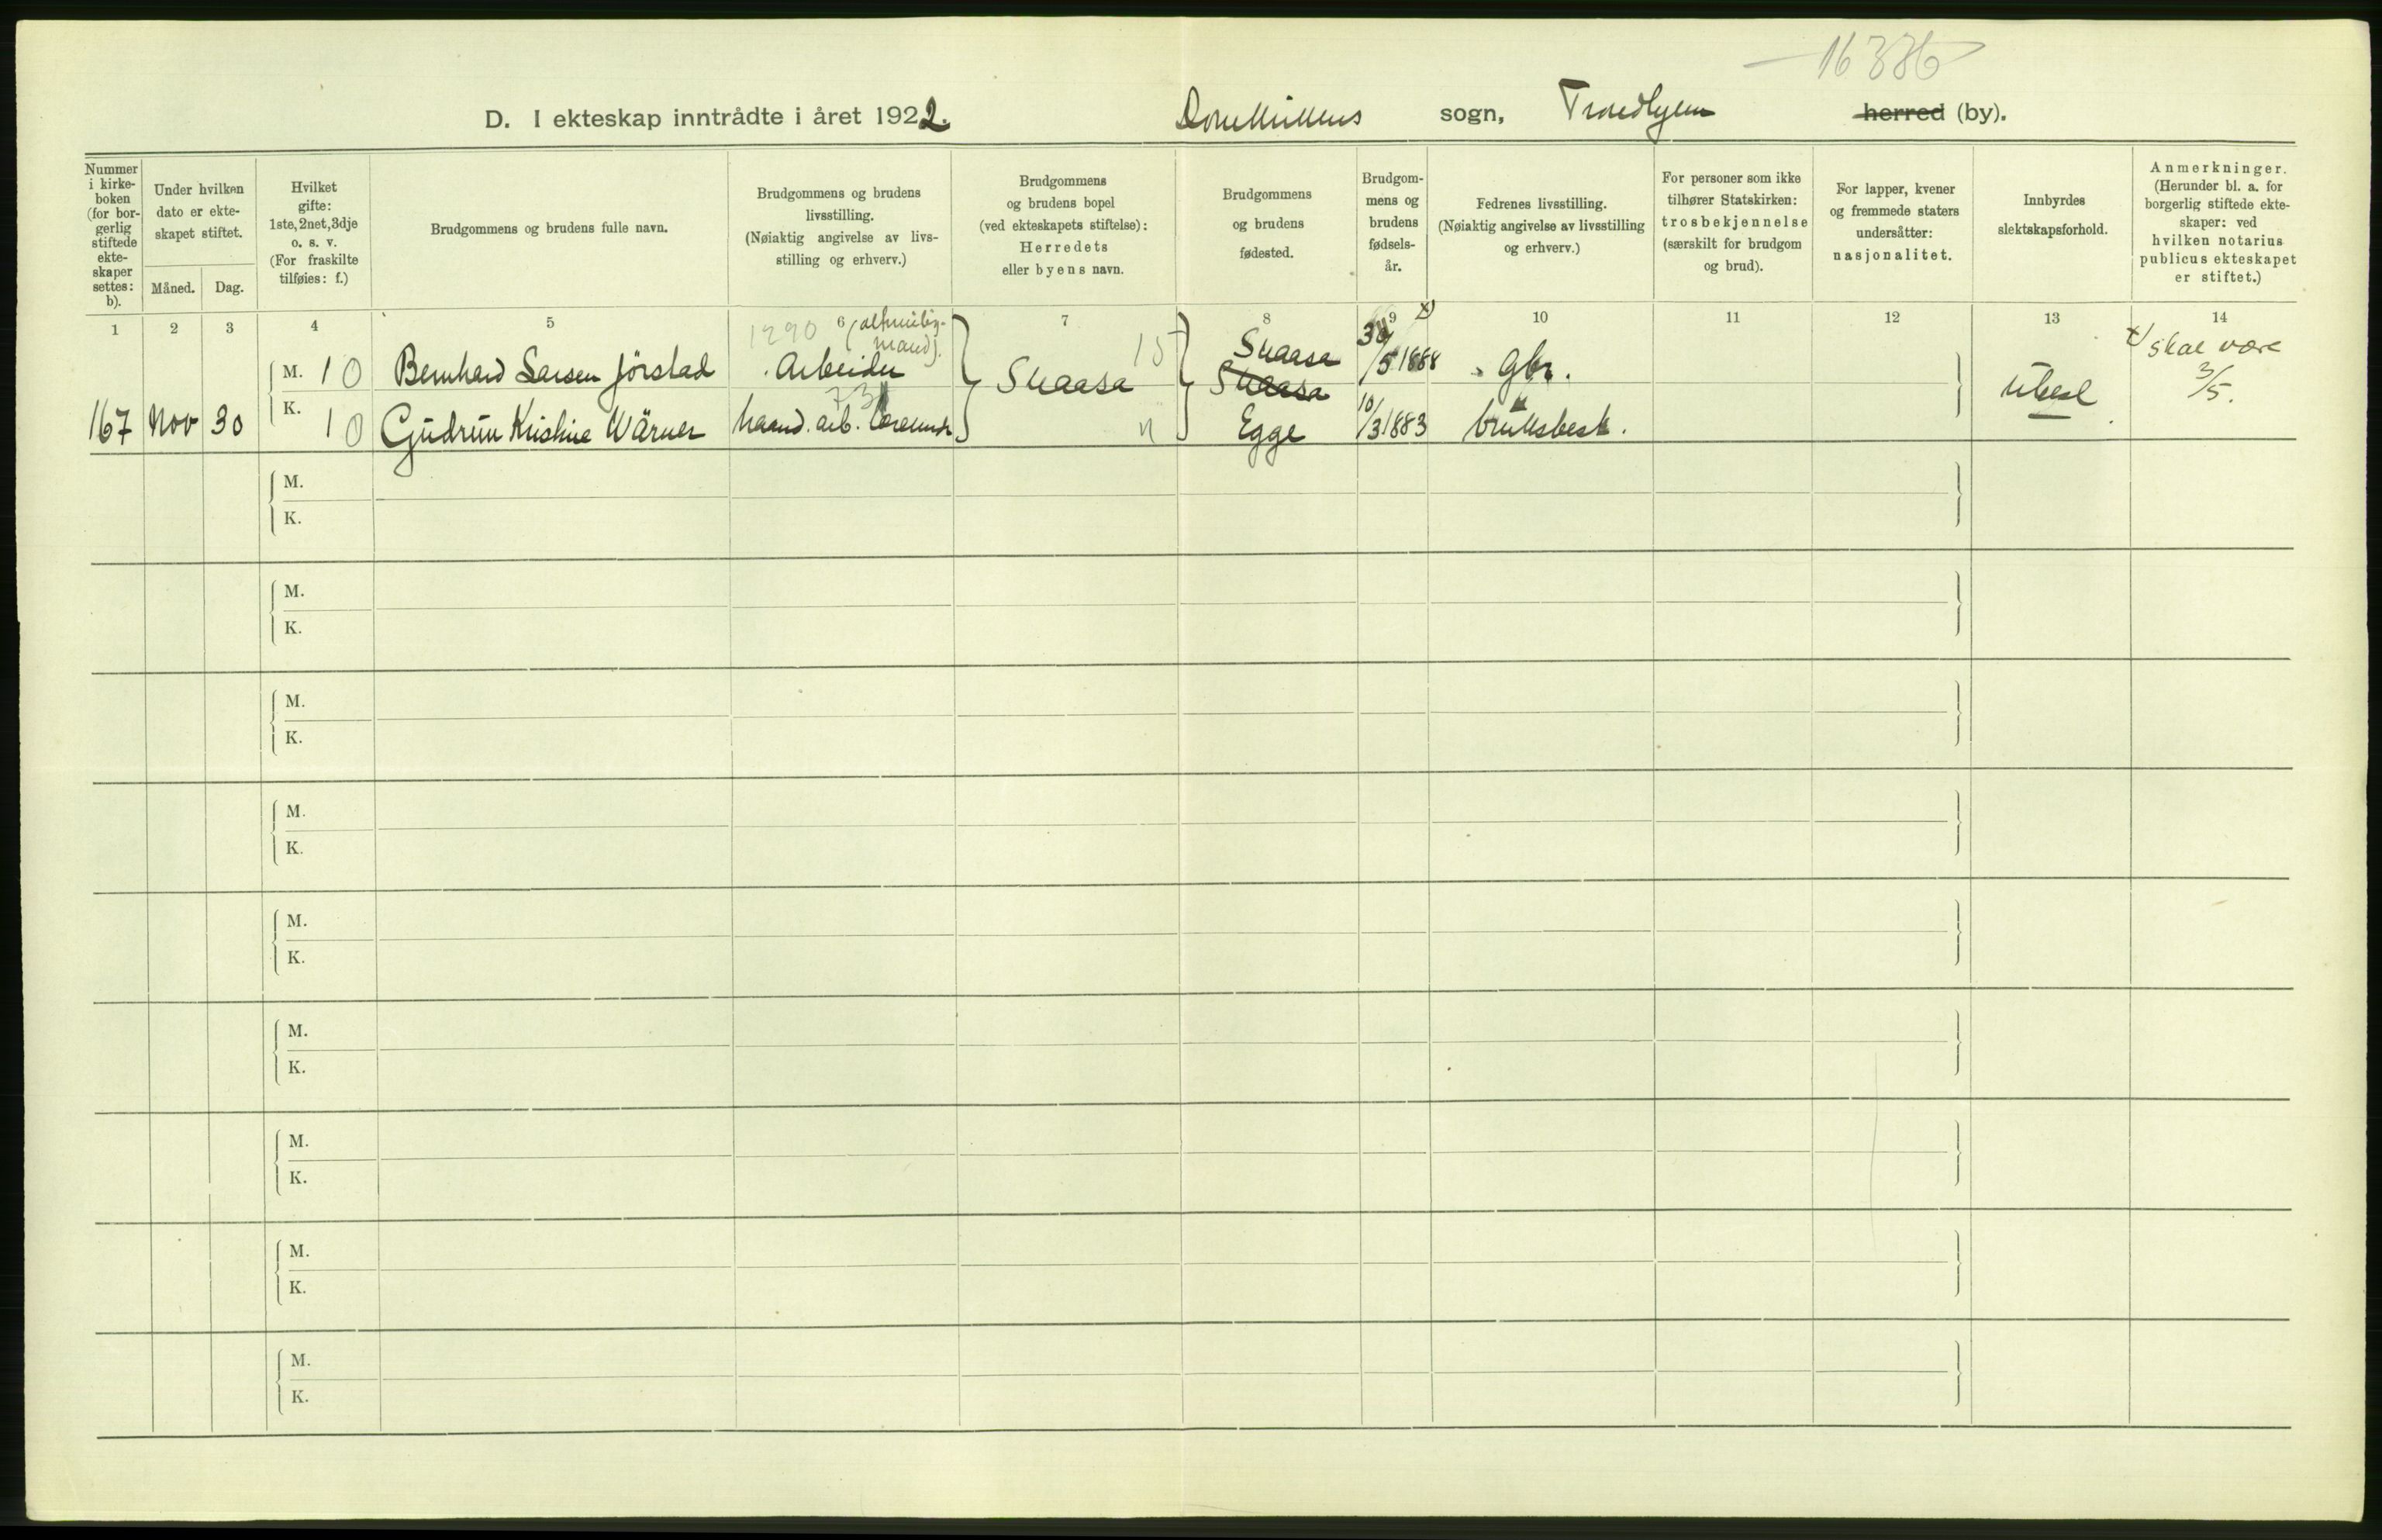 16336
D. I ekteskap inntrådte i året 1922. Domkirkens sogn, Trondhjem herred (by).
Nummer i kirke-boken (for bor-gerlig stiftede ekte-skaper settes: b).
Under hvilken dato er ekte-skapet stiftet.
Måned. Dag.
Hvilket gifte: 1ste, 2net, 3dje o. s. v. (For fraskilte tilføies: f.)
Brudgommens og brudens fulle navn.
Brudgommens og brudens livsstilling. (Nøiaktig angivelse av livs-stilling og erhverv.)
Brudgommens og brudens bopel (ved ekteskapets stiftelse): Herredets eller byens navn.
Brudgommens og brudens fødested.
Brudgom-mens og brudens fødsels-år.
Fedrenes livsstilling. (Nøiaktig angivelse av livsstilling og erhverv.)
For personer som ikke tilhører Statskirken: trosbekjennelse (særskilt for brudgom og brud).
For lapper, kvener og fremmede staters undersåtter: nasjonalitet.
Innbyrdes slektskapsforhold.
Anmerkninger. (Herunder bl. a. for borgerlig stiftede ekte-skaper: ved hvilken notarius publicus ekteskapet er stiftet.)
1 2 3 4 5 6 7 8 9 10 11 12 13 14
1290
M. 1 0 Bernhard Larsen Jörstad Arbeider Snaasa 15 Snaasa Snaasa 30/5 1888 x) Gbr. x) skal være 3/5.
73
167 Nov 30 K. 1 0 Gudrun Kristine Wärner haand.arb. n Egge 10/3 1883 bruksbes. Ubesl
M.
K.
M.
K.
M.
K.
M.
K.
M.
K.
M.
K.
M.
K.
M.
K.
M.
K.